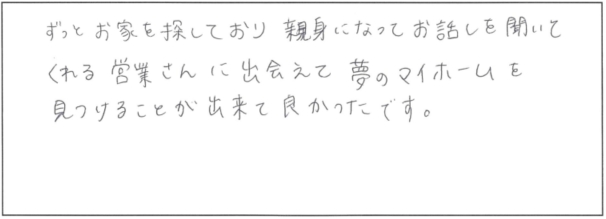 ずっとお家を探しており 親身になってお話しを聞いて
くれる営業さんに出会えて夢のマイホームを
見つけることが出来て良かったです。